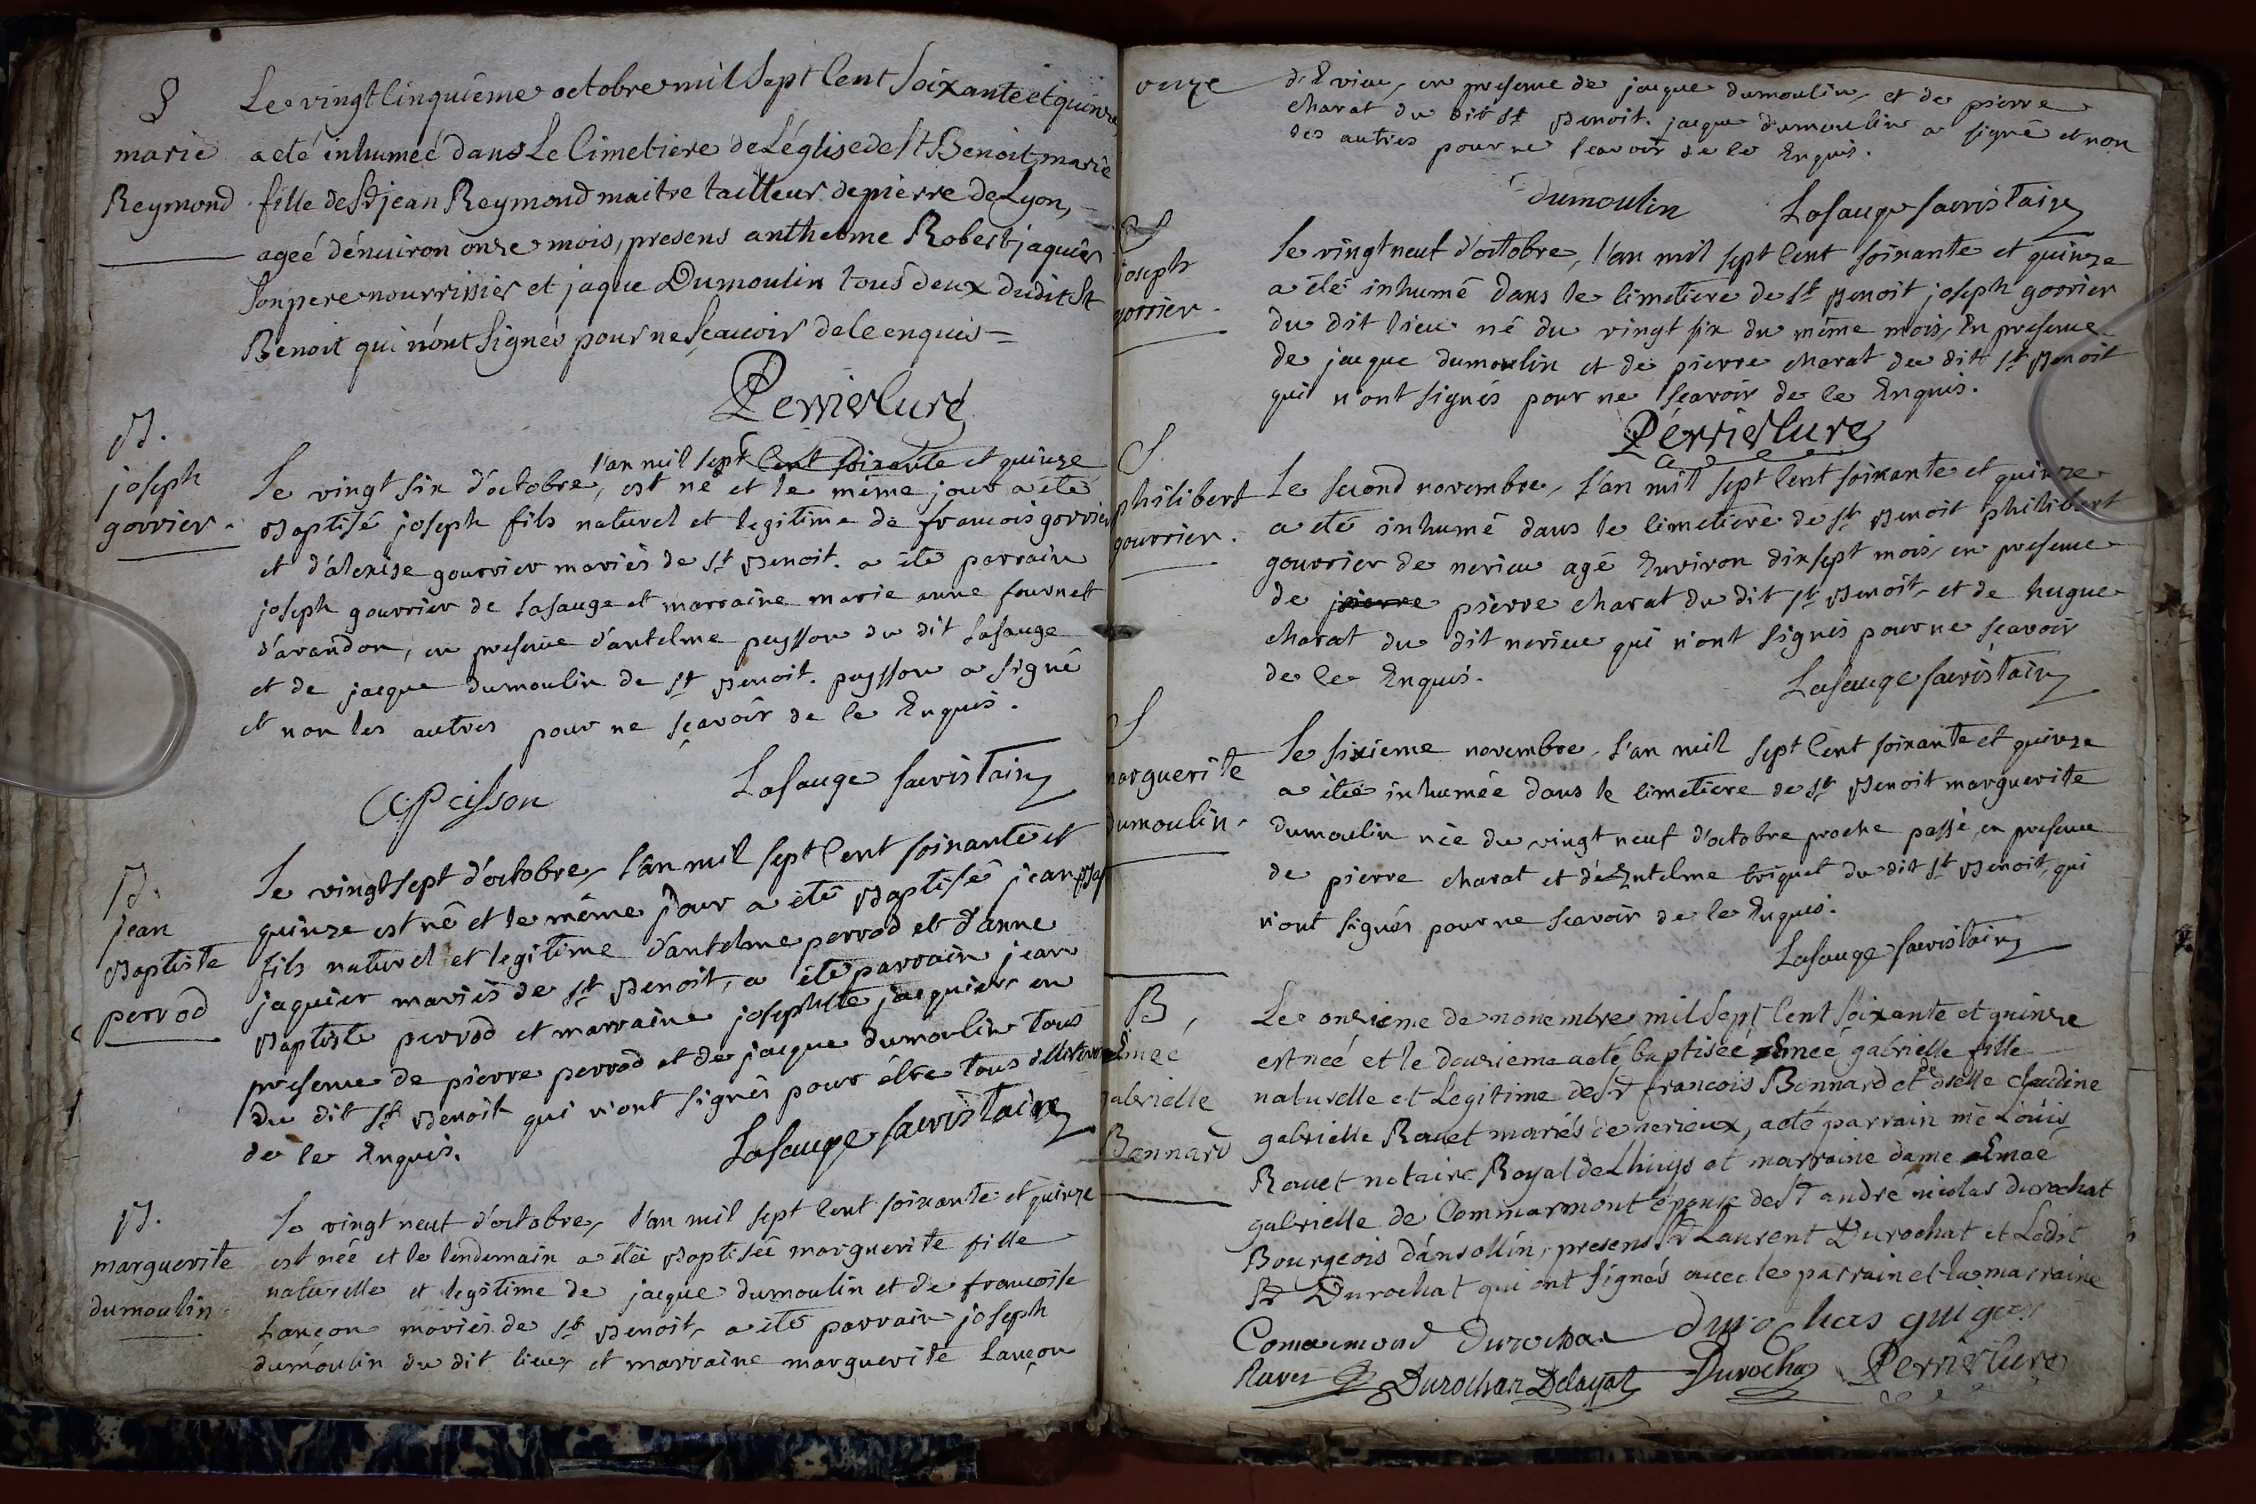 S
marie
Reymond
Le vingt cinquiéme octobre mil sept cent soixante et quinze
a eté inhumeé dans Le Cimetiere de L'église de St Benoit, marie
fille de Sr jean Reymond maitre tailleur de pierre de Lyon,
ageé d'énuiron onze mois, presens anthelme Robert jaquier
son pere nourrissier et jaque Dumoulin tous deux dudit St
Benoit qui n'ont signés pour ne sçauoir de ce enquis =
Perrier Curé
B.
joseph
gorrier.
l'an mil sept cent soixante et quinze
Le vingt six d'octobre, est né et le même jour a été
Baptisé joseph fils naturel et legitime de francois gorrier
et d'alexise gourrier mariés de St Benoit. a été parrain
joseph gourrier de Lasauge et marraine marie anne fournet
d'arandon, en presence d'antelme peysson du dit Lasauge
et de jacque dumoulin de St Benoit. peysson a signé
et non les autres pour ne sçavoir de ce Enquis.
A Peisson
Lasauge sacristain
B.
jean
Baptiste
perrod
Le vingt sept d'octobre, l'an mil sept cent soixante et
quinze est né et le même jour a été Baptisé jean Bap
fils naturel et legitime d'antelme perrod et d'anne
jaquier mariés de St Benoit, a été parrain jean
Baptiste perrod et marraine josephte jacquier en
presence de pierre perrod et de jacque dumoulin tous
du dit St Benoit qui n'ont signés pour être tous illiterés
de ce Enquis.
Lasauge sacristain
B.
marguerite
dumoulin.
Le vingt neuf d'octobre, l'an mil sept cent soixante et quinze
est née et le lendemain a été Baptisée marguerite fille
naturelle et legitime de jacque dumoulin et de francoise
Lançon mariés de St Benoit, a été parrain joseph
dumoulin du dit lieu, et marraine marguerite Lançon
onze
en presence de jacque dumoulin, et de pierre
charat du dit St Benoit. jacque dumoulin a signé et non
les autres pour ne sçavoir de ce Enquis.
dumoulin
Lasauge sacristain
S
joseph
gorrier.
Le vingt neuf d'octobre, l'an mil sept cent soixante et quinze
a été inhumé dans le cimetiere de St Benoit joseph gorrier
du dit lieu né du vingt six du même mois, En presence
de jacque dumoulin et de pierre charat du dit St Benoit
qui n'ont signés pour ne sçavoir de ce Enquis.
Perrier Curé
S.
philibert
gourrier.
Le second novembre, l'an mil sept cent soixante et quinze
a été inhumé dans le cimetiere de St Benoit philibert
gourrier de nerieu agé Environ dix sept mois, en presence
de pierre charat du dit St Benoit, et de hugue
charat du dit nerieu qui n'ont signés pour ne scavoir
de ce Enquis.
Lasauge sacristain
S
marguerite
dumoulin.
Le sixieme novembre, l'an mil sept cent soixante et quinze
a été inhumée dans le cimetiere de St Benoit marguerite
dumoulin née du vingt neuf d'octobre proche passé, en presence
de pierre charat et d'Entelme briquet du dit St Benoit, qui
n'ont signés pour ne scavoir de ce Enquis.
Lasauge sacristain
B,
Emeé
gabrielle
Bonnard
Le onzieme de nouembre mil sept cent soixante et quinze
est neé et le douzieme a eté baptisée Emeé gabrielle fille
naturelle et Legitime de Sr francois Bonnard et de delle claudine
gabrielle Rauet mariés de nerieux, a eté parrain me Loüis
Rauet notaire Royal de Lhuys et marraine dame Emeé
gabrielle de Commarmont épouse de Sr andré nicolas durochat
Bourgeois d'ansollin, presens Sr Laurent Durochat et Ledit
Sr Durochat qui ont signés auec le parrain et la marraine
Comarmond Durochat
Ravet Durochat Delagat Durochat Perrier Curé